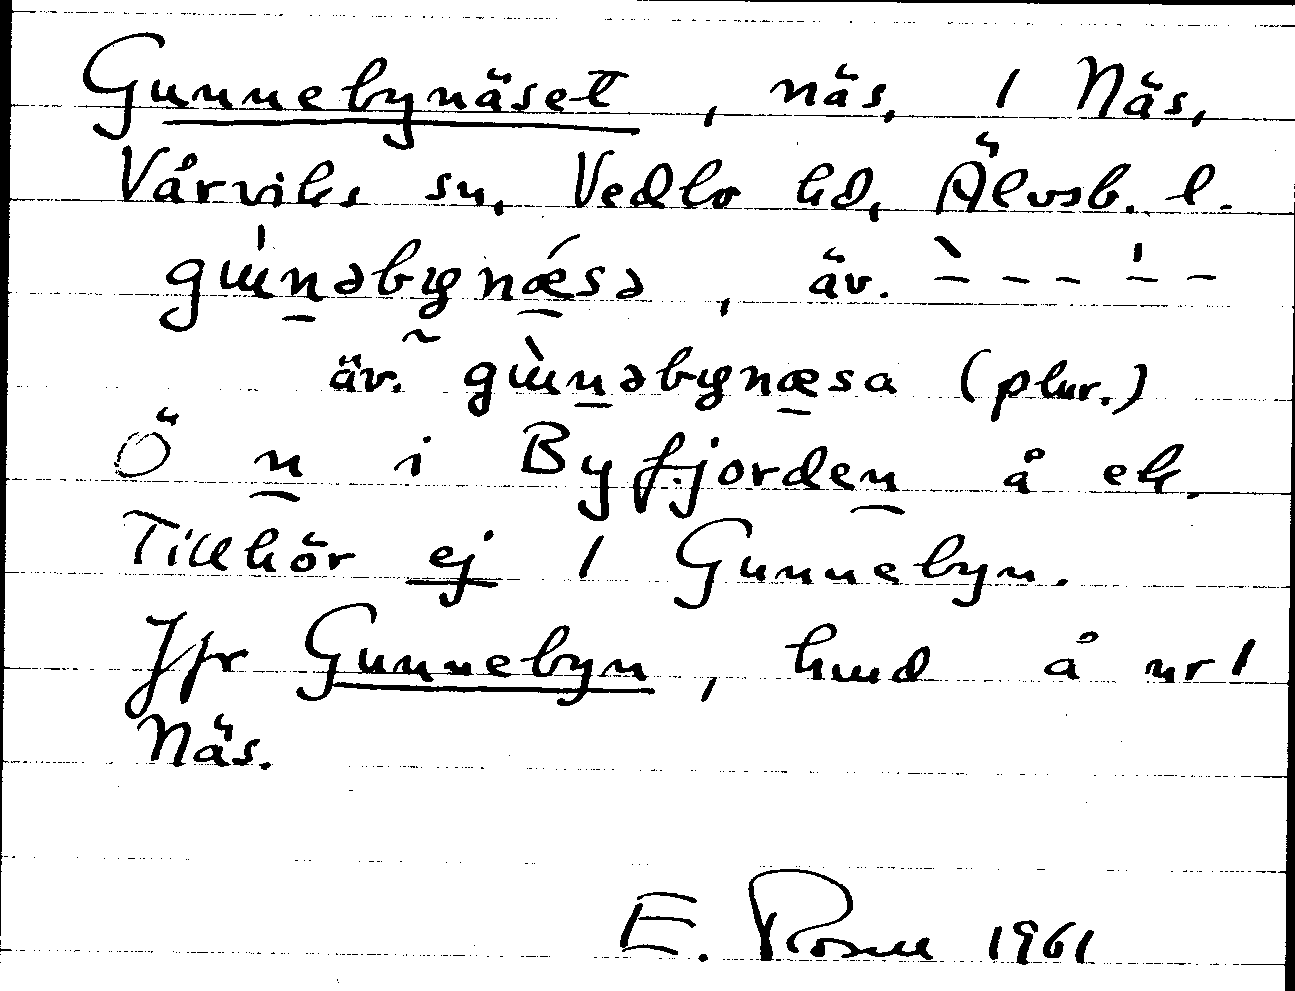 Gunnebynäset, näs, 1 Näs,
Vårviks sn, Vedbo hd, Älvsb. l.
gɯ́n̲əbynǽsə, äv. ̀– – – – ́– –
äv. gɯ̀n̲əbynæsa (plur.)
Ö n i Byfjorden å ek.
Tillhör ej 1 Gunnebyn.
Jfr Gunnebyn, hmd å nr 1
Näs.
E. Rosell 1961